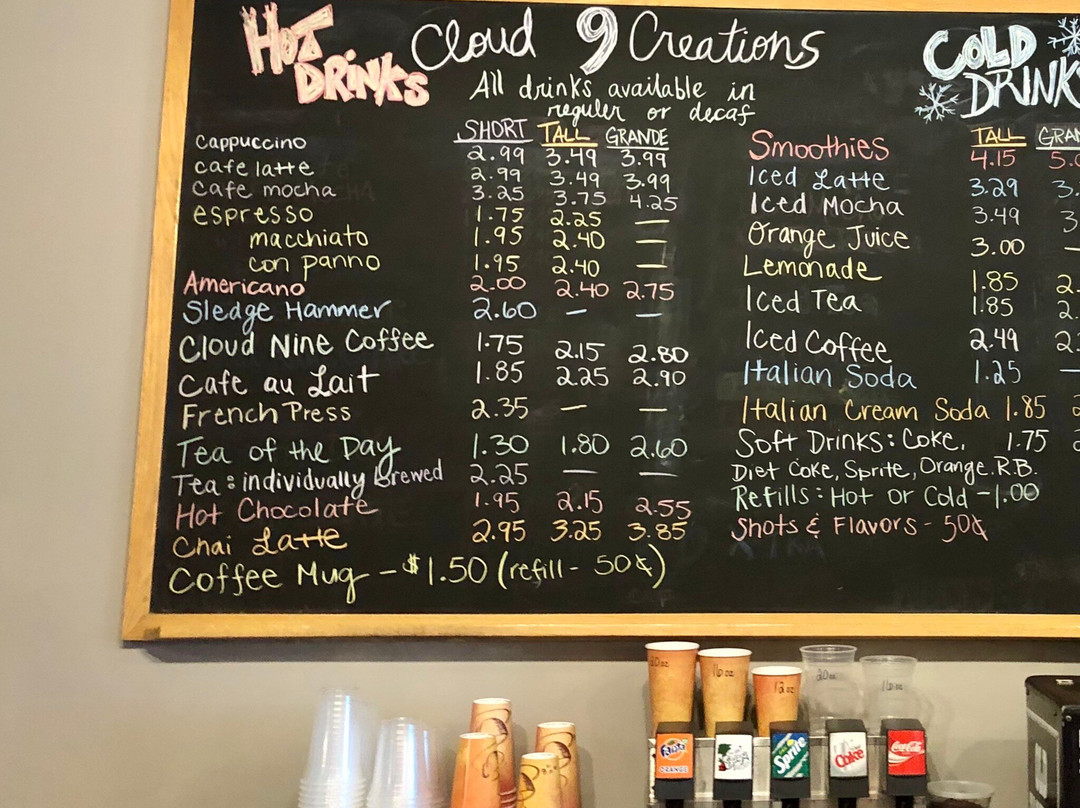 HOT DRINKS
Cloud 9 Creations
All drinks available in
reguler or decaf
SHORT TALL GRANDE
Cappuccino 2.99 3.49 3.99
cafe latte 2.99 3.49 3.99
cafe mocha 3.25 3.75 4.25
espresso 1.75 2.25 —
macchiato 1.95 2.40 —
con panno 1.95 2.40 —
Americano 2.00 2.40 2.75
Sledge Hammer 2.60 — —
Cloud Nine Coffee 1.75 2.15 2.80
Cafe au Lait 1.85 2.25 2.90
French Press 2.35 — —
Tea of the Day 1.30 1.80 2.60
Tea: individually brewed 2.25 — —
Hot Chocolate 1.95 2.15 2.55
Chai Latte 2.95 3.25 3.85
Coffee Mug - $1.50 (refill - 50¢)
COLD
DRINK
TALL GRAN
Smoothies 4.15 5.0
Iced Latte 3.29 3.
Iced Mocha 3.49 3
Orange Juice 3.00 —
Lemonade 1.85 2.
Iced Tea 1.85 2.
Iced Coffee 2.49 2.
Italian Soda 1.25 —
Italian Cream Soda 1.85 2
Soft Drinks: Coke, 1.75 2
Diet Coke, Sprite, Orange. R.B.
Refills: Hot or Cold - 1.00
Shots & Flavors - 50¢
20oz
16oz
12oz
20oz
16oz
Fanta
ORANGE
Sprite
Coke
Coca-Cola